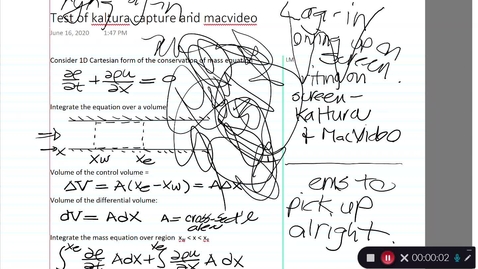 Test of kaltura capture and macvideo
June 16, 2020 1:47 PM
Consider 1D Cartesian form of the conservation of mass equation
∂ρ/∂t + ∂ρu/∂x = 0
Integrate the equation over a volume
x
xw xe
Volume of the control volume =
ΔV = A(xe - xw) = AΔx
Volume of the differential volume:
dV = Adx A = cross-sect'l
area
Integrate the mass equation over region xw < x < xe
∫xw xe ∂ρ/∂t Adx + ∫xe ∂ρu/∂x A dx
Lag-in
up on
screen.
LM
screen-
Kaltura
+ MacVideo
ems to
pick up
alright.
00:00:02